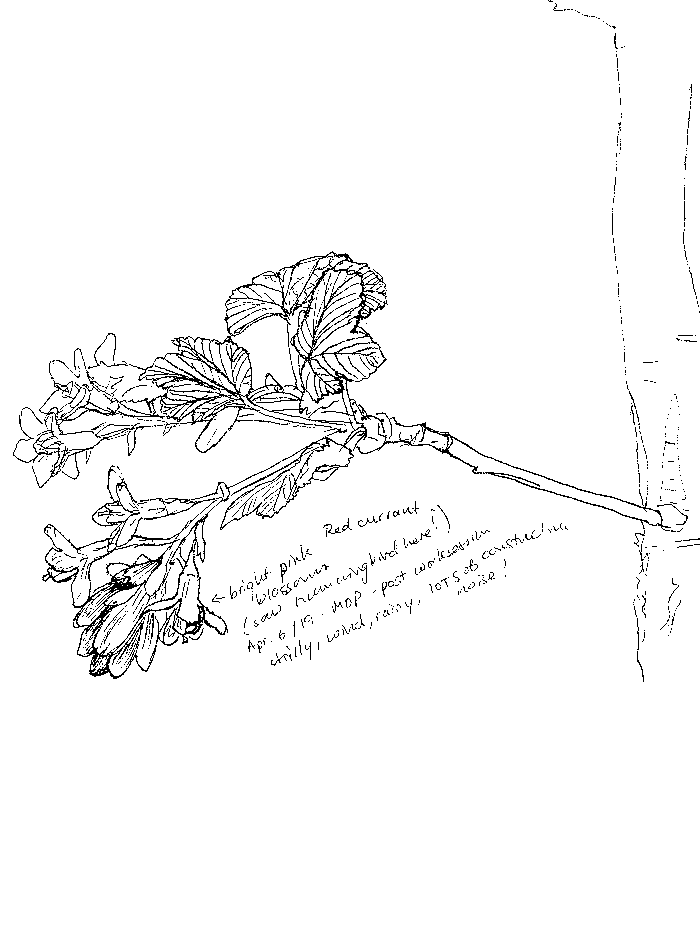 Red currant
← bright pink
blossoms
(saw hummingbird here!)
Apr. 6/19. MOP - post worksession
chilly, wind, rainy, LOTS of construction
noise!